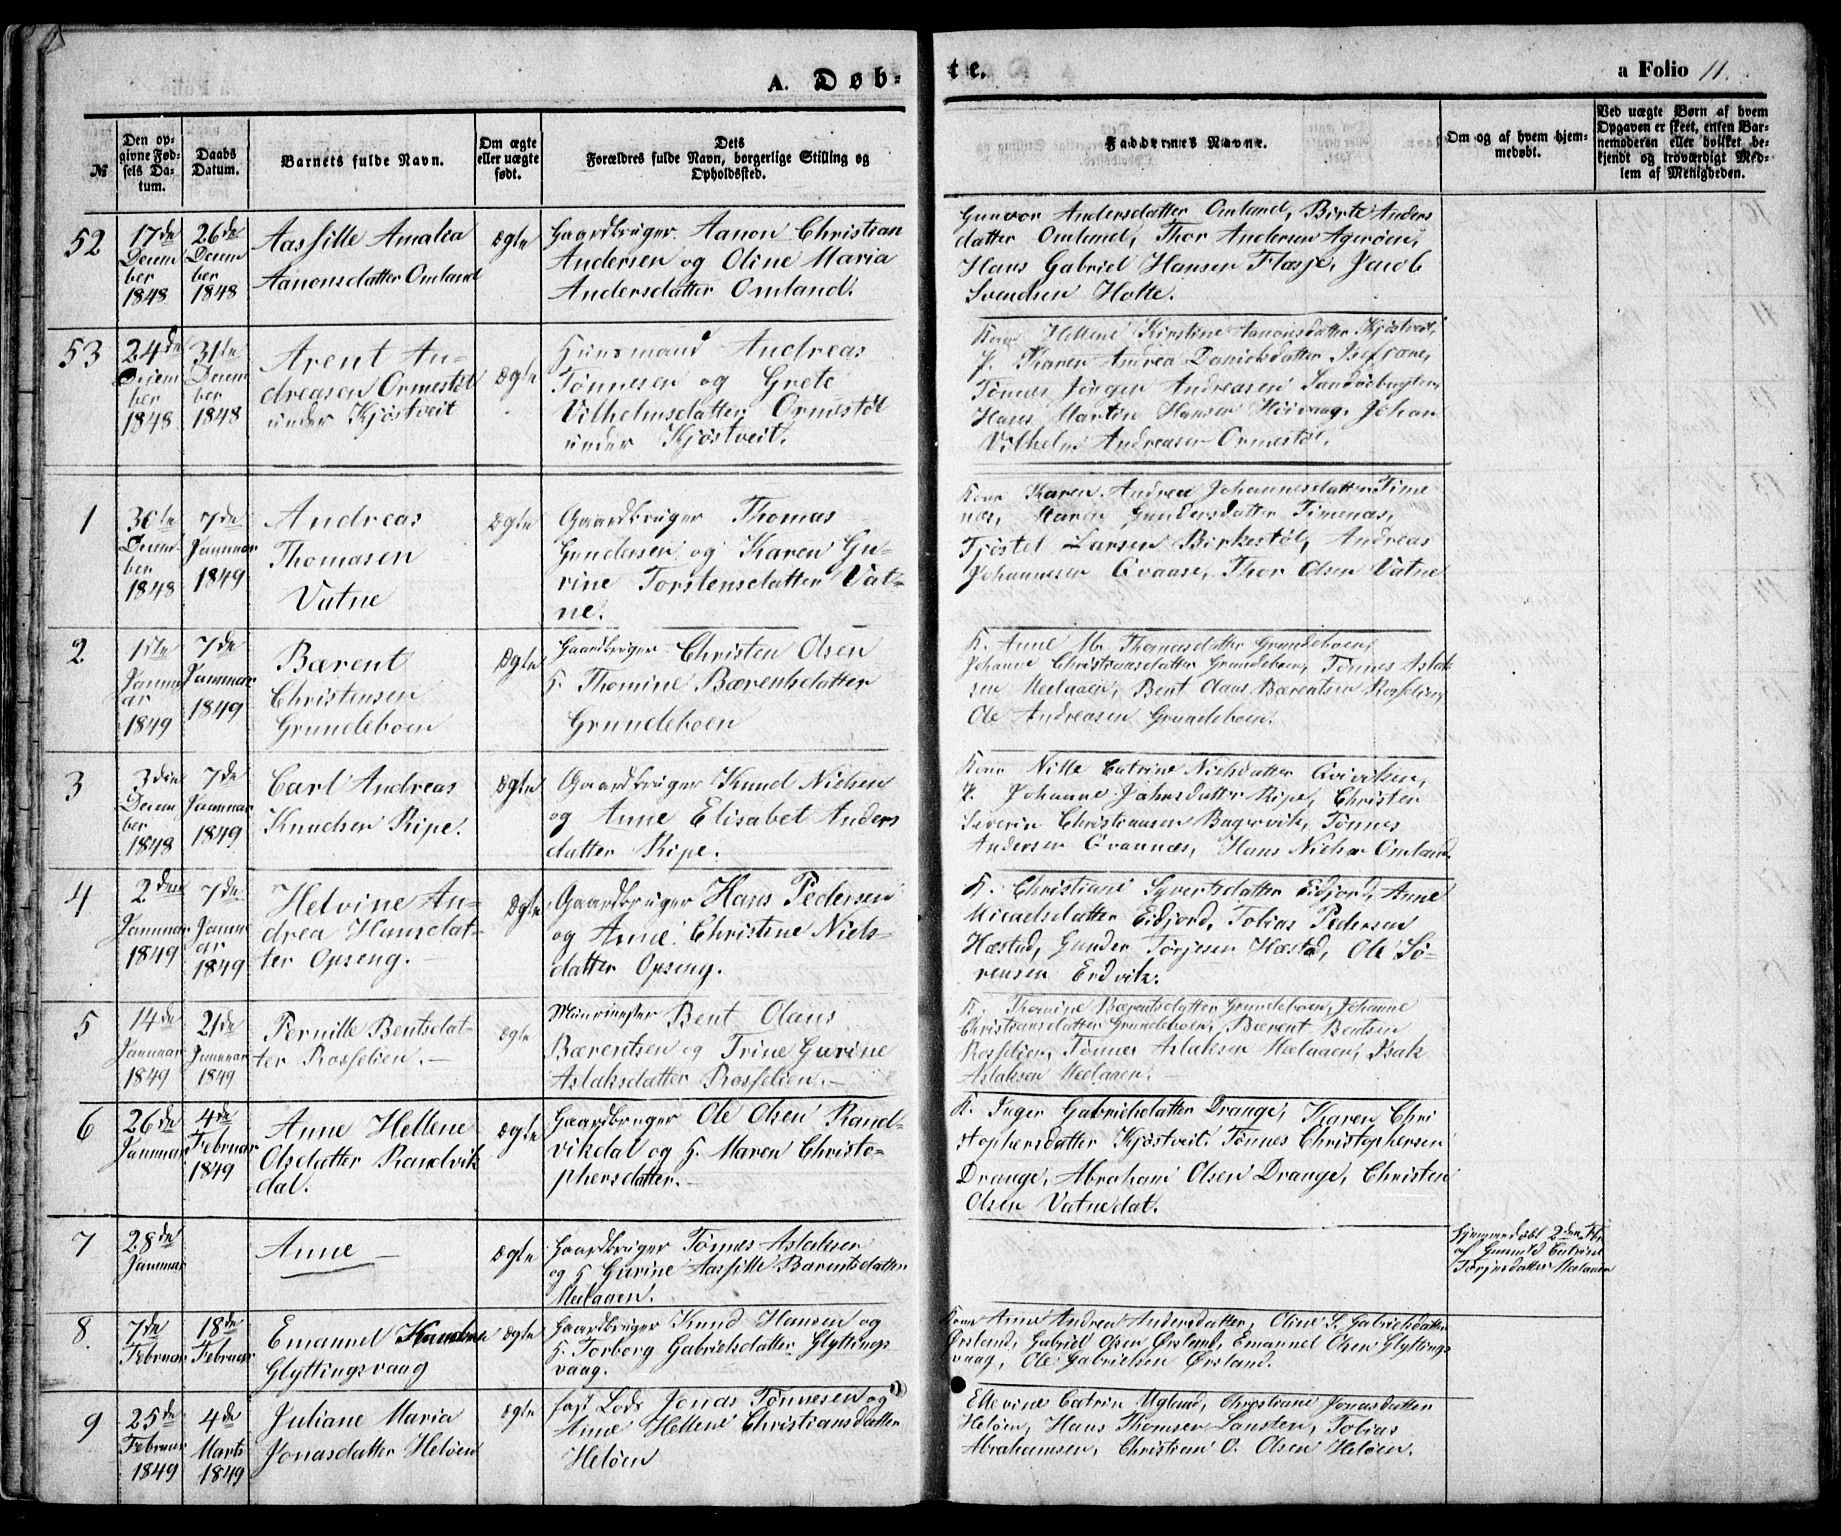 A. Døb-
te.
a Folio 11.
№
Den op-
givne Fød-
sels Da-
tum.
Daabs
Datum.
Barnets fulde Navn.
Om ægte
eller uægte
født.
Dets
Forældres fulde Navn, borgerlige Stilling og
Opholdssted.
Faddernes Navne.
Om og af hvem hjem-
medøbt.
Ved uægte Børn af hvem
Opgaven er skeet, enten Bar-
nemoderen eller hvilket be-
kjendt og troværdigt Med-
lem af Menigheden.
52
17de
Decem
ber
1848
26de
Decem
ber
1848
Aassille Amalea
Aanonsdatter Omland
Ægte
Gaardbruger Aanon Christian
Andersen og Oline Maria
Andersdatter Omland.
Gunvor Andersdatter Omland, Birte Anders
datter Omland, Thor Andersen Agerøen,
Hans Gabriel Hansen Flasje, Jacob
Svendsen Holte.
53
24de
Decem
ber
1848
31te
Decem
ber
1848
Arent An-
dreasen Ormestøl
under Kjøstveit
Ægte
Huusmand Andreas
Tønnesen og Grete
Vilhelmsdatter Ormestøl
under Kjøstveit.
Kone Hellene Kirstine Aanonsdatter Kjøstveit,
P. Karen Andrea Danielsdatter
Tønnes Jørgen Andreasen Sandøebugten,
Hans Martin Hansen Høivaag, Johan
Vilhelm Andreasen Ormestøl.
1
30te
Decem-
ber
1848
7de
Januar
1849
Andreas
Thomasen
Vatne
Ægte
Gaardbruger Thomas
Gundersen og Karen Gu-
rine Torstensdatter Vat-
ne.
Kone Karen Andrea Johannesdatter Time
næs, Maren Gundersdatter Timenæs,
Tjøstel Larsen Birkestøl, Andreas
Johannesen Qvaase, Thor Olsen Vatne
2
1ste
Janu
ar
1849
7de
Januar
1849
Bærent
Christensen
Grundeboen
Ægte
Gaardbruger Christen Olsen
H. Thomine Bærentsdatter
Grundeboen
K. Anne M. Thomasdatter Grundeboen,
Johanne Christiansdatter Grundeboen, Tønnes Aslak
sen Meelaaen, Bent Olaus Bærentsen Rosselien,
Ole Andreasen Grundeboen.
3
3die
Decem
ber
1848
7de
Januar
1849
Carl Andreas
Knudsen Ripe.
Ægte
Gaardbruger Knud Nielsen
og Anne Elisabet Anders
datter Ripe.
Kone Nille Catrine Nielsdatter Qviviken,
P. Johanne Jahnsdatter Ripe, Christen
Severin Christiansen Bagervik, Tønnes
Andersen Qvannæs, Hans Nielsen Omland.
4
2den
Januar
1849
7de
Janu
ar
1849
Helvine An-
drea Hansdat-
ter Opseng.
Ægte
Gaardbruger Hans Pedersen
og Anne Christine Niels-
datter Opseng.
K. Christiane Syvertsdatter Eidjord, Anne
Micaelsdatter Eidjord, Tobias Pedersen
Hæstad, Gunder Torjesen Hæstad, Ole Sø-
rensen Eedvik.
5
14de
Januar
1849
21de
Januar
1849
Pernille Bentsdat-
ter Rosselien.
Ægte
Muurmester Bent Olaus
Bærentsen og Trine Gurine
Aslaksdatter Rosselien.
K. Thomine Bærentsdatter Grundeboen, Johanne
Christiansdatter Grundeboen, Bærent Bentsen
Rosselien, Tønnes Aslaksen Meelaaen, Isak
Aslaksen Meelaaen.
6
26de
Januar
4de
Februar
1849
Anne Hellene
Olsdatter Randvik
dal.
Ægte
Gaardbruger Ole Olsen Rand-
vikdal og H. Maren Christo-
phersdatter.
K. Inger Gabrielsdatter Drange, Karen Chri
stophersdatter Kjøstveit, Tønnes Christophersen
Drange, Abraham Olsen Drange, Christen
Olsen Vatnedal.
7
28de
Januar
Anne
Ægte
Gaardbruger Tønnes Aslaksen
og H. Gurine Aassille Bærentsdatter
Meelaaen.
Hjemmedøbt 2den Fbr
af Gunnild Catrine
Torjusdatter Meelaaen
8
7de
Februar
18de
Februar
Emanuel Knudsen
Glyttingsvaag
Ægte
Gaardbruger Knud Hansen og
H. Torborg Gabrielsdatter Glyttings
vaag.
Kone Anne Andrea Andersdatter, Oline S. Gabrielsdatter
Ørsland, Gabriel Olsen Ørsland, Emanuel Olsen Glyttings
vaag, Ole Gabrielsen Ørsland.
9
25de
Februar
1849
4de
Marts
1849
Juliane Maria
Jonasdatter Heløen
Ægte
fast Lods Jonas Tønnesen og
Anne Hellene Christiansdatter
Heløen
Ellevine Catrin Ugland, Christiane Jonasdatter
Heløen, Hans Thomsen Sansten, Tobias
Abrahamsen, Christian O. Olsen Heløen.